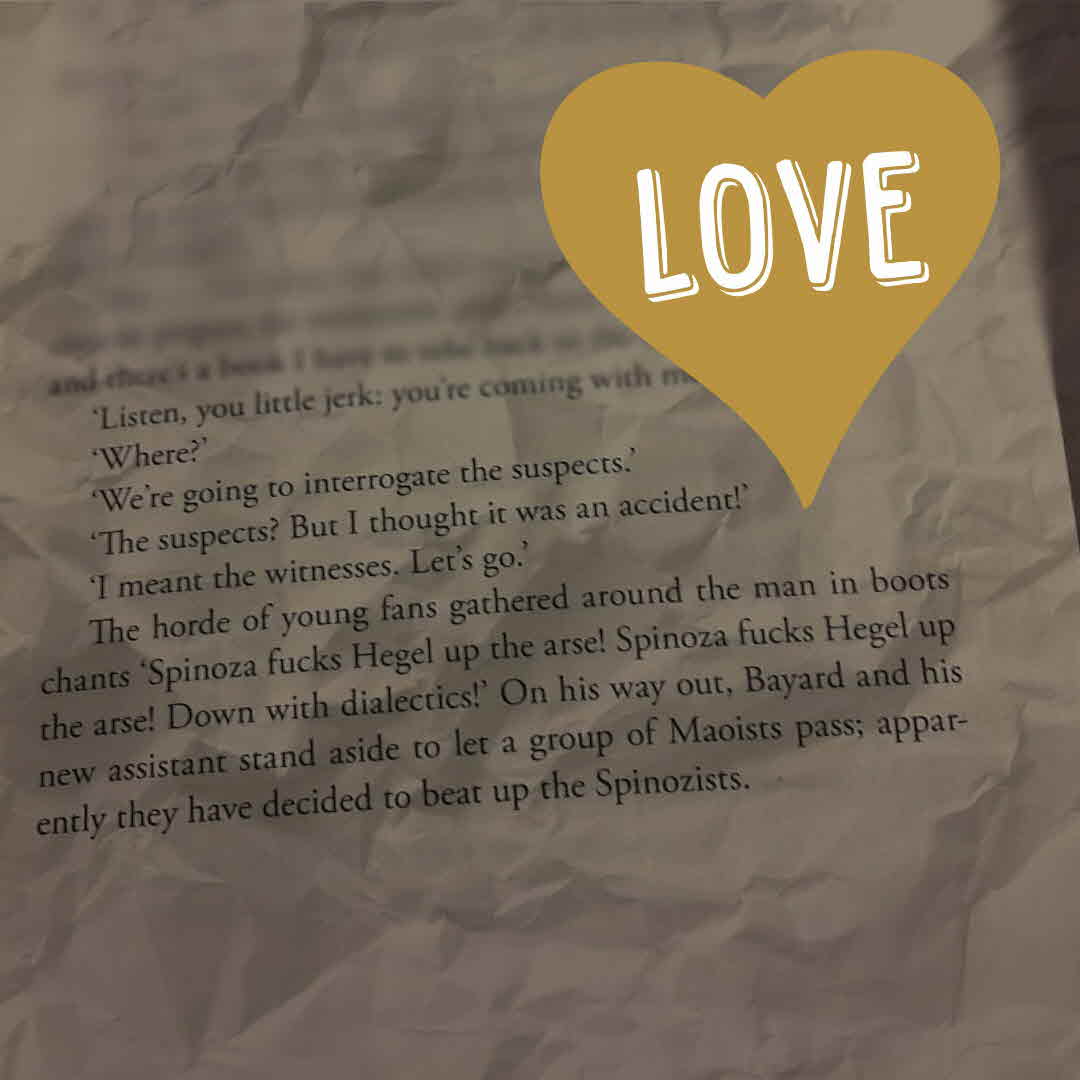 LOVE
and there's a book I have to take back to the
'Listen, you little jerk: you're coming with
'Where?'
'We're going to interrogate the suspects.'
'The suspects? But I thought it was an accident!'
'I meant the witnesses. Let's go.'
The horde of young fans gathered around the man in boots
chants 'Spinoza fucks Hegel up the arse! Spinoza fucks Hegel up
the arse! Down with dialectics!' On his way out, Bayard and his
new assistant stand aside to let a group of Maoists pass; appar-
ently they have decided to beat up the Spinozists.